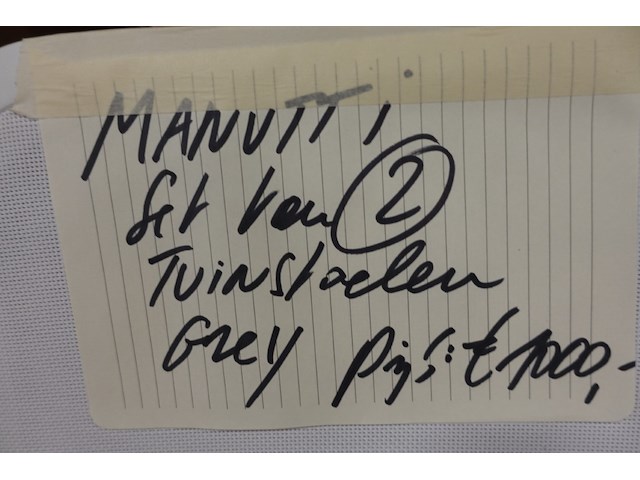 MANUTTI
Set van 2
Tuinstoelen
Grey Prijs: € 1000,-